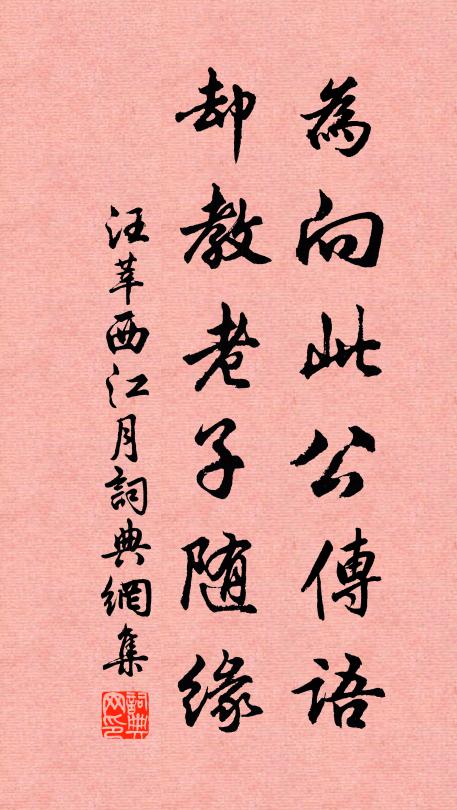 為向此公傳語
却教老子随緣
汪莘西江月詞典網集
詞典網印